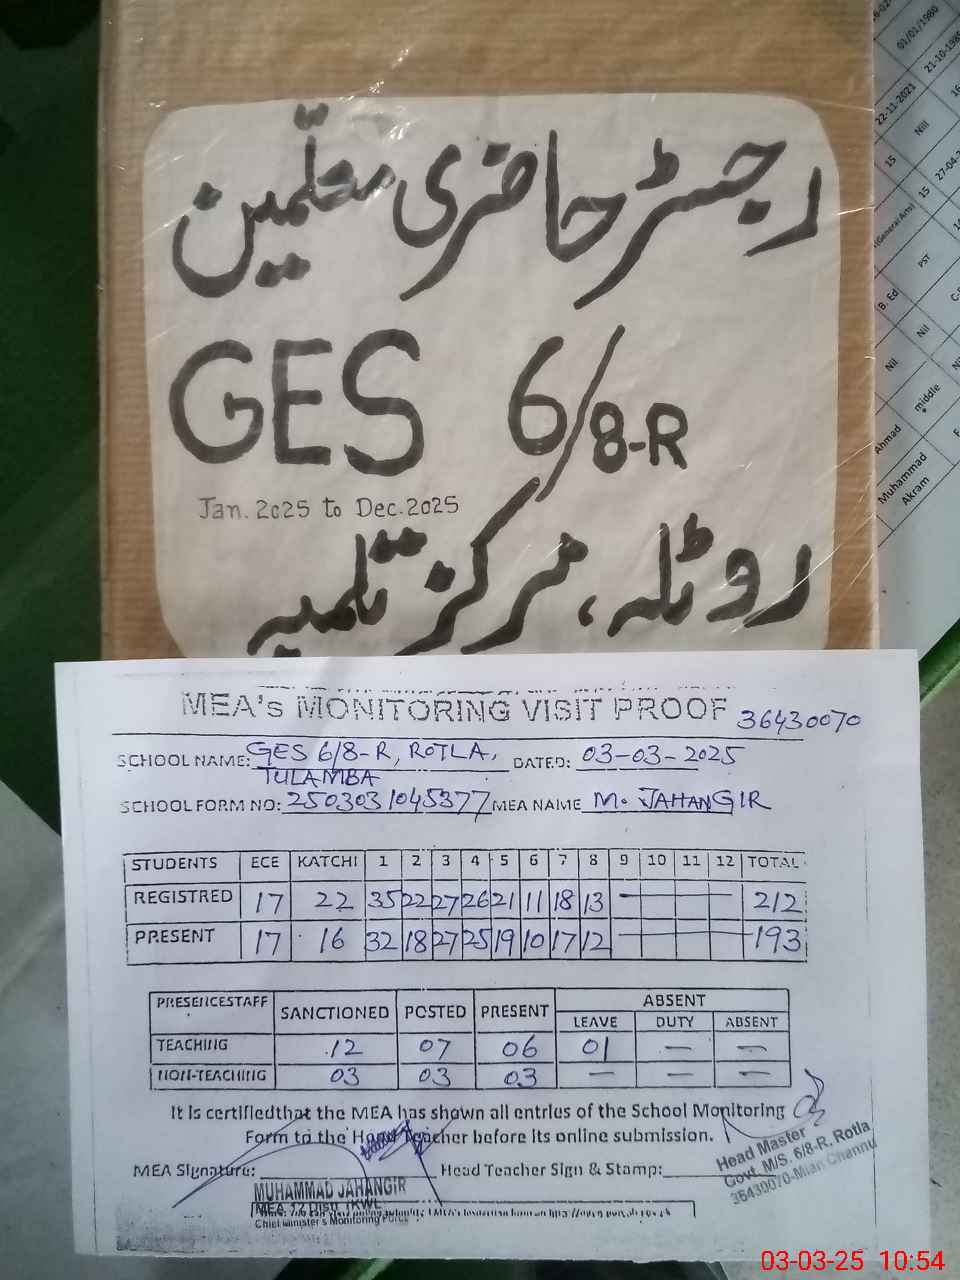 رجسٹر حاضری معلّمین
GES 6/8-R
Jan. 2025 to Dec. 2025
روٹلہ، مرکز تلمبہ
MEA's MONITORING VISIT PROOF 36430070
SCHOOL NAME: GES 6/8-R, ROTLA, TULAMBA DATED: 03-03-2025
SCHOOL FORM NO: 2503031045377 MEA NAME M. JAHANGIR
STUDENTS ECE KATCHI 1 2 3 4 5 6 7 8 9 10 11 12 TOTAL
REGISTRED 17 22 35 22 27 26 21 11 18 13 — 212
PRESENT 17 16 32 18 27 25 19 10 17 12 — 193
PRESENCESTAFF SANCTIONED POSTED PRESENT ABSENT
LEAVE DUTY ABSENT
TEACHING 12 07 06 01 — —
NON-TEACHING 03 03 03 — — —
It is certifiedthat the MEA has shown all entries of the School Monitoring
Form to the Head Teacher before its online submission.
MEA Signature: Head Teacher Sign & Stamp:
MUHAMMAD JAHANGIR
MEA 12 Distt. KWL
Chief Minister's Monitoring Force
Head Master
Govt. M/S. 6/8-R. Rotla
36430070-Mian Channu
01/01/1980
21-10-198
22-11-2021
Nill
15
27-04-
15
(General Arts)
PST
B. Ed
Nil
Nil
middle
Ahmad
Muhammad
Akram
03-03-25 10:54